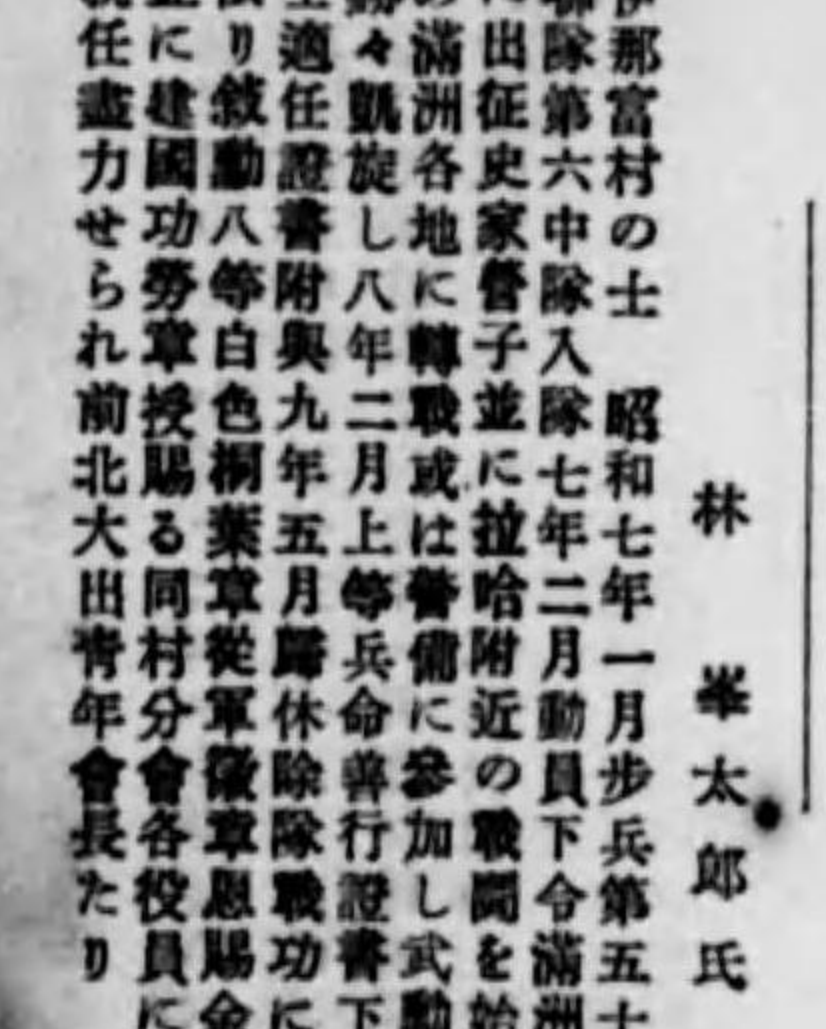 林峯太郎氏
那富村の士　昭和七年一月步兵第五十
隊第六中隊入隊七年二月動員下令滿洲
出征史家營子並に拉哈附近の戰鬪を始
滿洲各地に轉戰或は警備に參加し武勳
々凱旋し八年二月上等兵命善行證書下
適任證書附與九年五月歸休除隊戰功に
り敍勳八等白色桐葉章從軍徽章恩賜金
に建國功勞章授賜る同村分會各役員に
任盡力せられ前北大出靑年會長たり